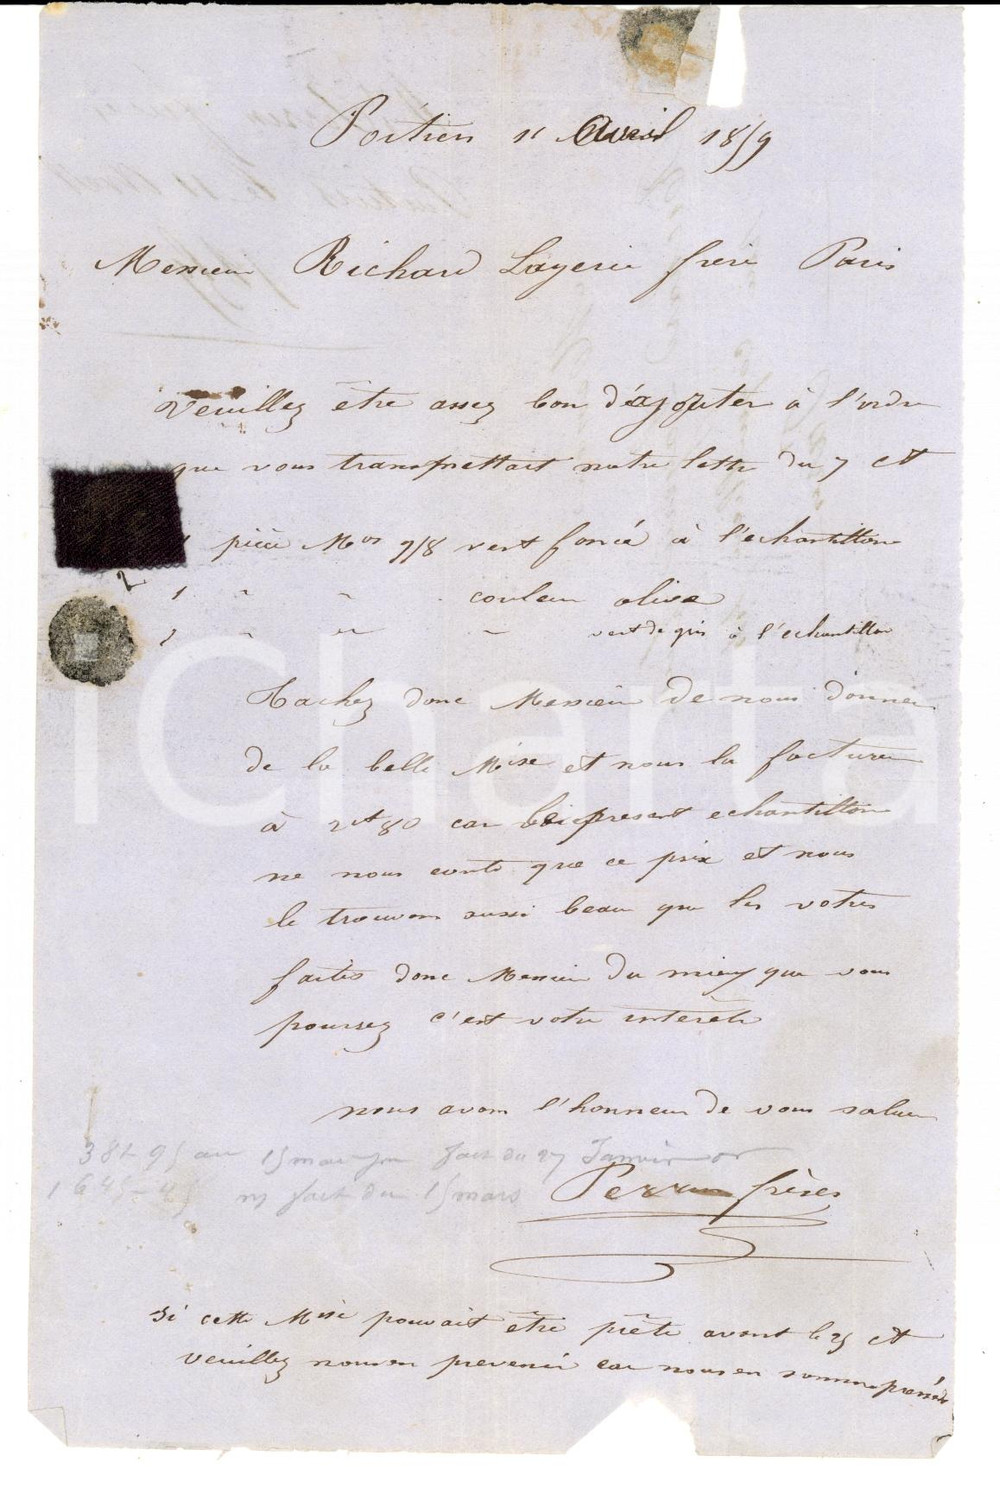 Poitiers 11 Avril 1859
Messieurs Richard Layerie frère Paris
Veuillez être assez bon d'éajouter à l'ordre
que vous transmettait notre lettre du 7 ct
1 pièce Mos 9/8 vert foncé à l'echantillon
2
1 " " couleur olive
1 " " " vert de gris à l'echantillon
Tachez donc Messieurs de nous donner
de la belle Mise et nous la facturer
à 2ct 80 car le present echantillon
ne nous coute que ce prix et nous
le trouvons aussi beau que les votres
faites donc Messieurs du mieux que vous
pourrez c'est votre intérêt
nous avons l'honneur de vous saluer
fact du 27 Janvier
fact du 15 mars
Perrau frères
Si cette Mise pouvait être prête avant le 25 ct
veuillez nous en prevenir car nous en sommes pressés
iCharta